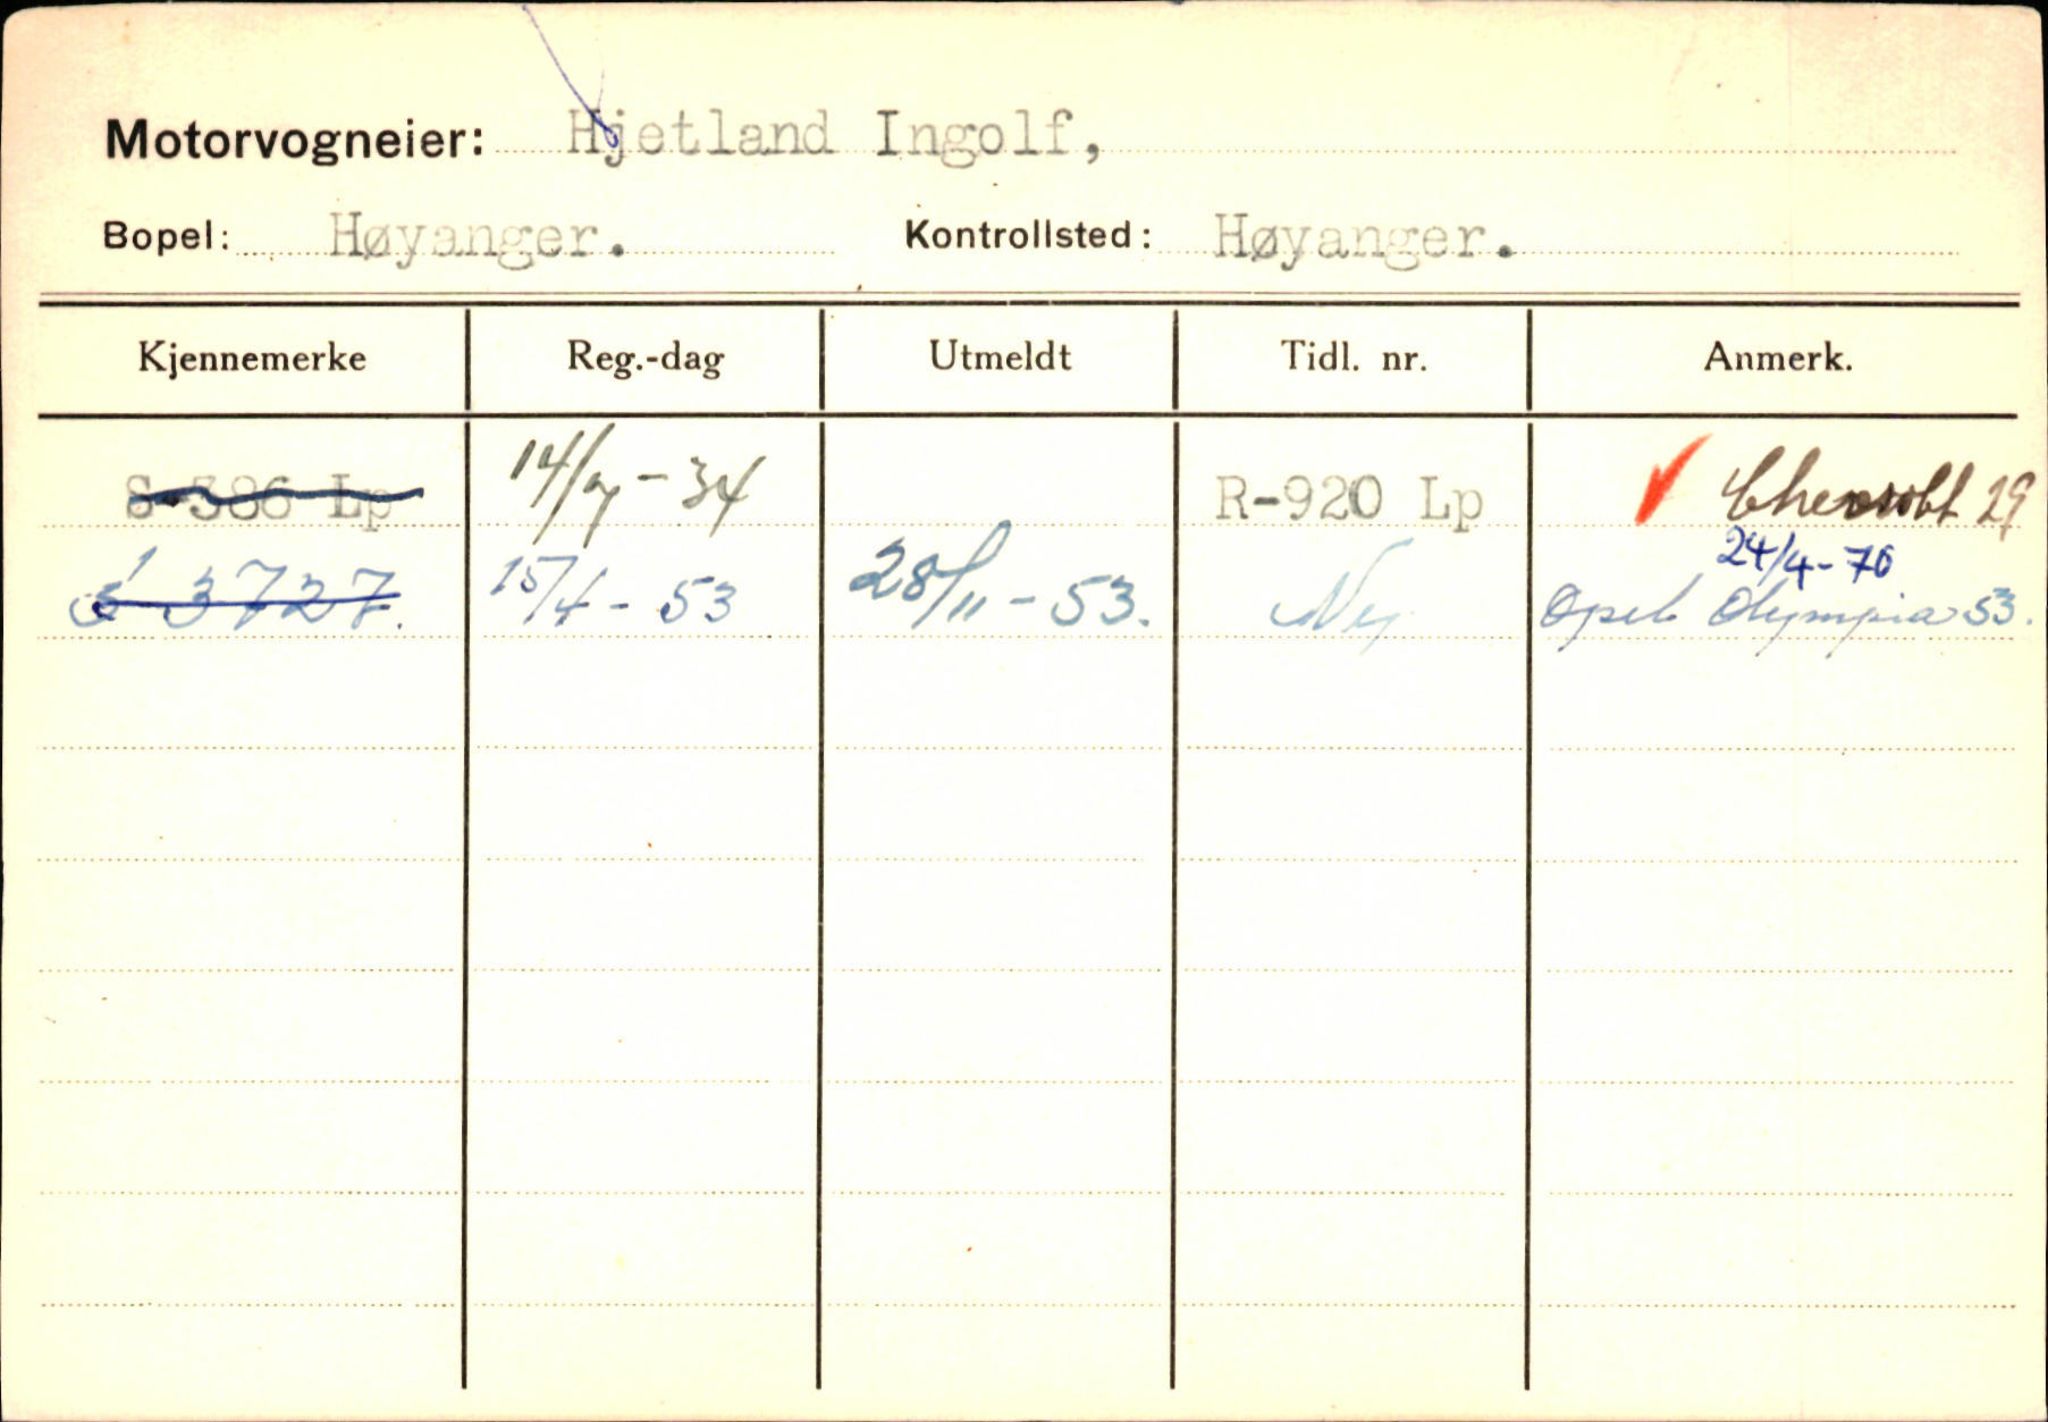 Motorvogneier: Hjetland Ingolf,
Bopel: Høyanger. Kontrollsted: Høyanger.
Kjennemerke Reg.-dag Utmeldt Tidl. nr. Anmerk.
S-386 Lp 14/7-34 R-920 Lp Chevrolet 29
24/4-70
S 3727. 15/4-53 28/11-53. Ny Opel Olympia 53.